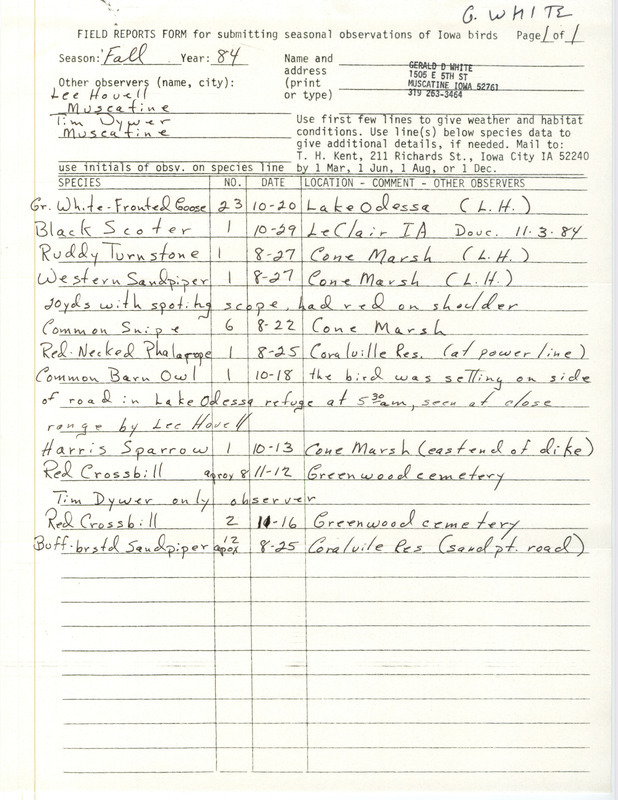 G. WHITE
FIELD REPORTS FORM for submitting seasonal observations of Iowa birds Page 1 of 1
Season: Fall Year: 84
Name and address (print or type)
GERALD D WHITE
1505 E 5TH ST
MUSCATINE IOWA 52761
319 263-3464
Other observers (name, city):
Lee Hovell
Muscatine
Tim Dywer
Muscatine
use initials of obsv. on species line
Use first few lines to give weather and habitat
conditions. Use line(s) below species data to
give additional details, if needed. Mail to:
T. H. Kent, 211 Richards St., Iowa City IA 52240
by 1 Mar, 1 Jun, 1 Aug, or 1 Dec.
SPECIES NO. DATE LOCATION - COMMENT - OTHER OBSERVERS
Gr. White-Fronted Goose 23 10-20 Lake Odessa (L.H.)
Black Scoter 1 10-29 LeClair IA Douc. 11.3.84
Ruddy Turnstone 1 8-27 Cone Marsh (L.H.)
Western Sandpiper 1 8-27 Cone Marsh (L.H.)
20yds with spoting scope, had red on shoulder
Common Snipe 6 8-22 Cone Marsh
Red-Necked Phalarope 1 8-25 Coralville Res. (at power line)
Common Barn Owl 1 10-18 the bird was setting on side
of road in Lake Odessa refuge at 5 30 am, seen at close
range by Lee Hovell
Harris Sparrow 1 10-13 Cone Marsh (east end of dike)
Red Crossbill aprox 8 11-12 Greenwood cemetery
Tim Dywer only observer
Red Crossbill 2 11-16 Greenwood cemetery
Buff-brstd Sandpiper apox 12 8-25 Coralvile Res (sand pt. road)